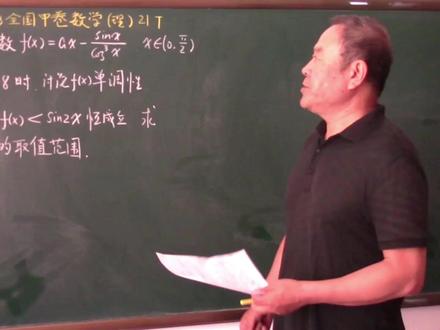 全国甲卷数学(理)21T
数f(x)=ax-\frac{sinx}{cos^3x} x∈(0,\frac{π}{2})
8时,讨论f(x)单调性
f(x)<sin2x恒成立 求
的取值范围.